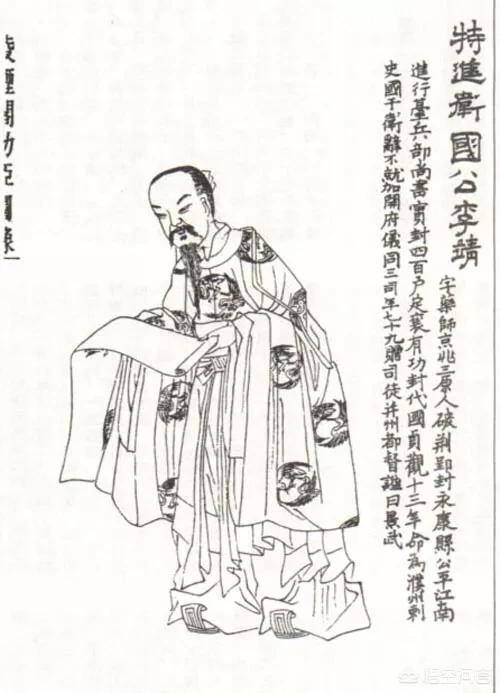 特進衛國公李靖
字藥師京兆三原人破荆郢封永康縣公平江南
進行臺兵部尚書實封四百户定襄有功封代國貞觀十三年命為濮州刺
史國于衛辭不就加開府儀同三司年七十九贈司徒并州都督謚曰景武
凌煙閣功臣圖像一
悟空问答